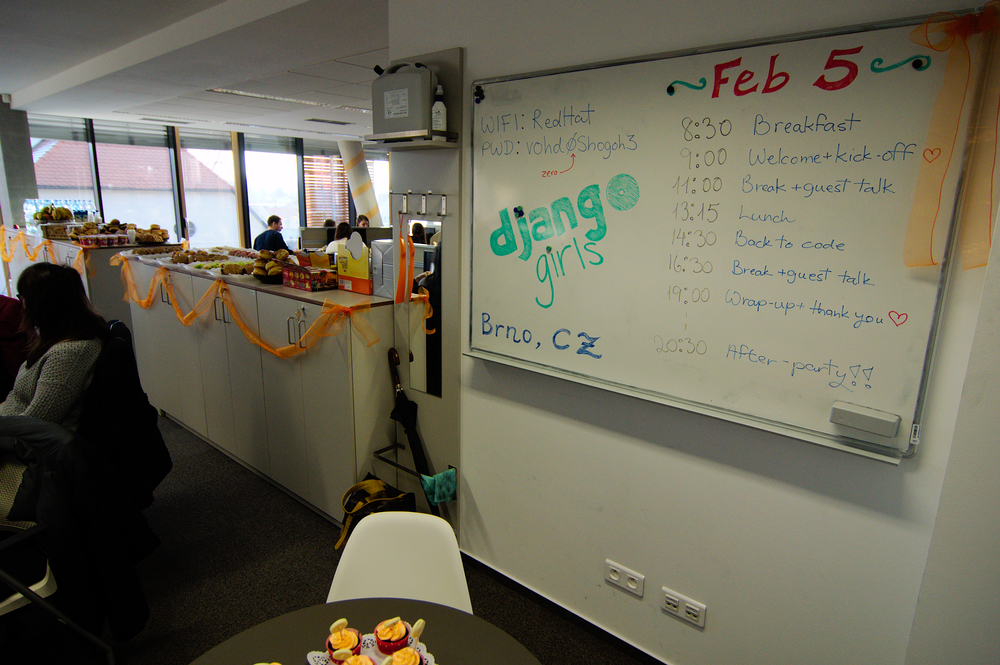 Feb 5
WIFI: RedHat
PWD: vohdØShogoh3
zero
django
girls
Brno, CZ
8:30 Breakfast
9:00 Welcome + kick-off
11:00 Break + guest talk
13:15 Lunch
14:30 Back to code
16:30 Break + guest talk
19:00 Wrap-up + thank you
20:30 After-party!!